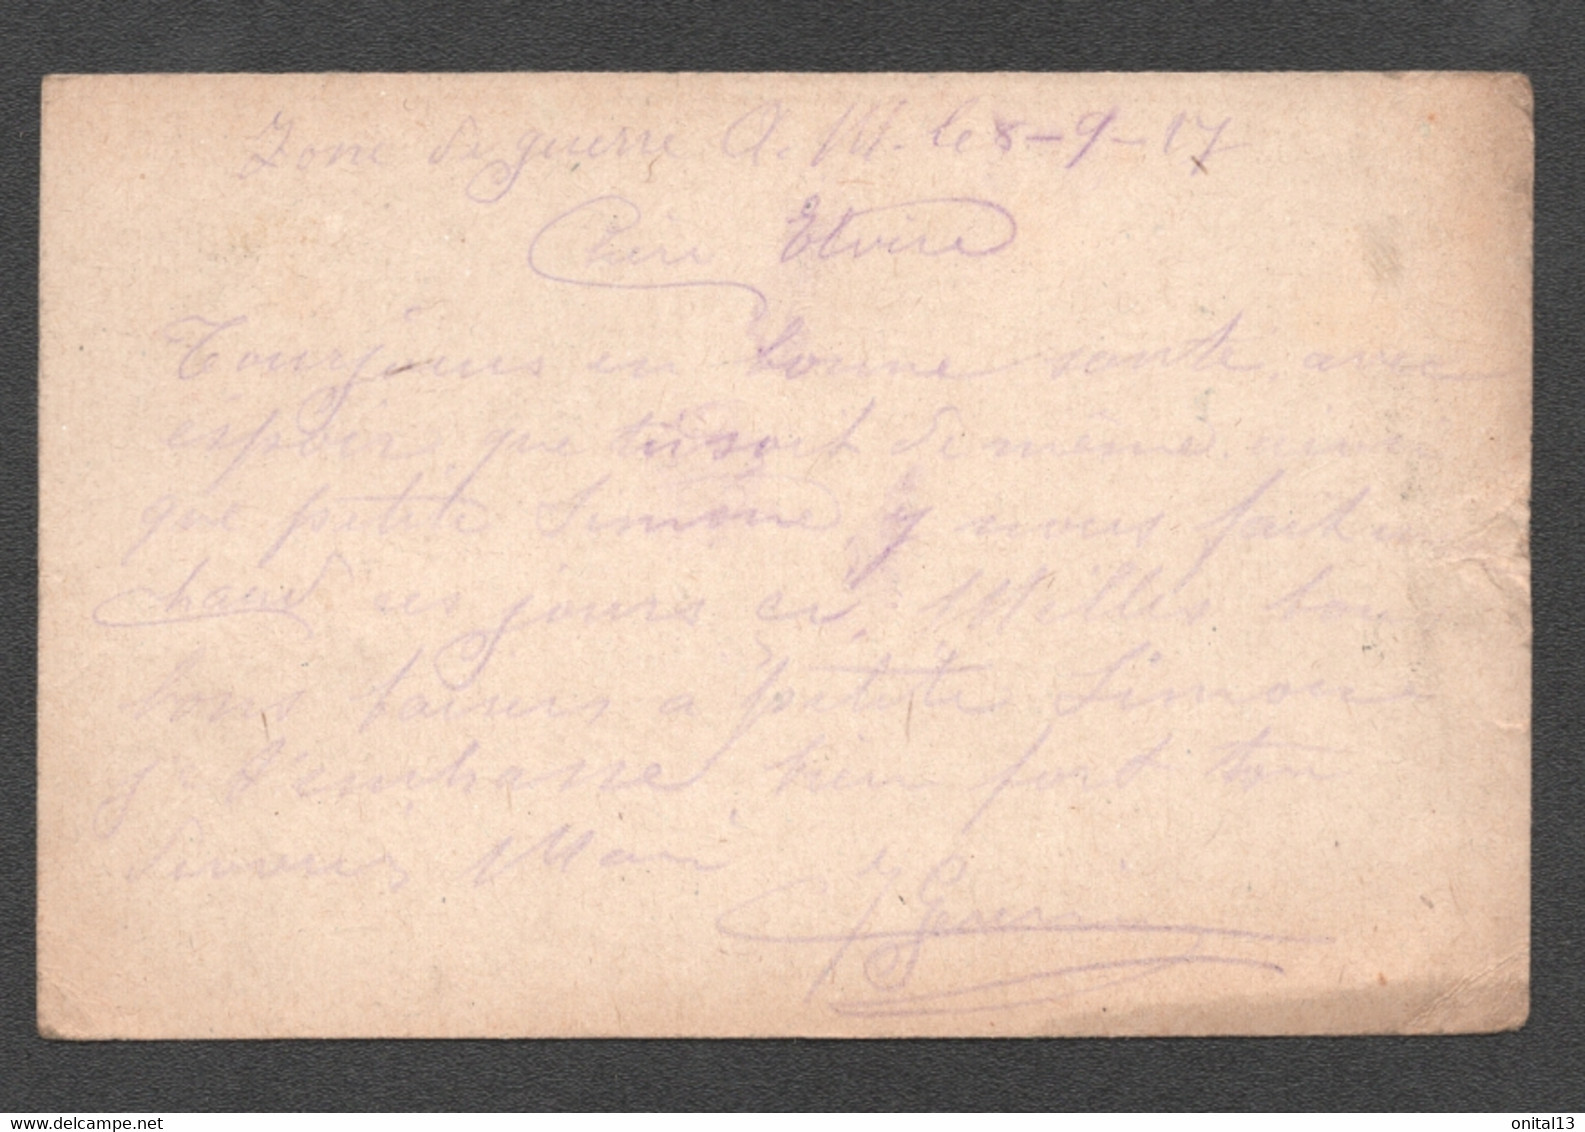 Zone de guerre Q. M. le 8-9-17
Chère Elvire
Tourjours en bonne sante, avec
espoire que tu soit de même ainsi
que petite Simone, y nous fait
chaud ses jours ci, Milles bons
bons baisers a petite Simone
je t'embrasse bien fort ton
Mari
delcampe.net
onital13